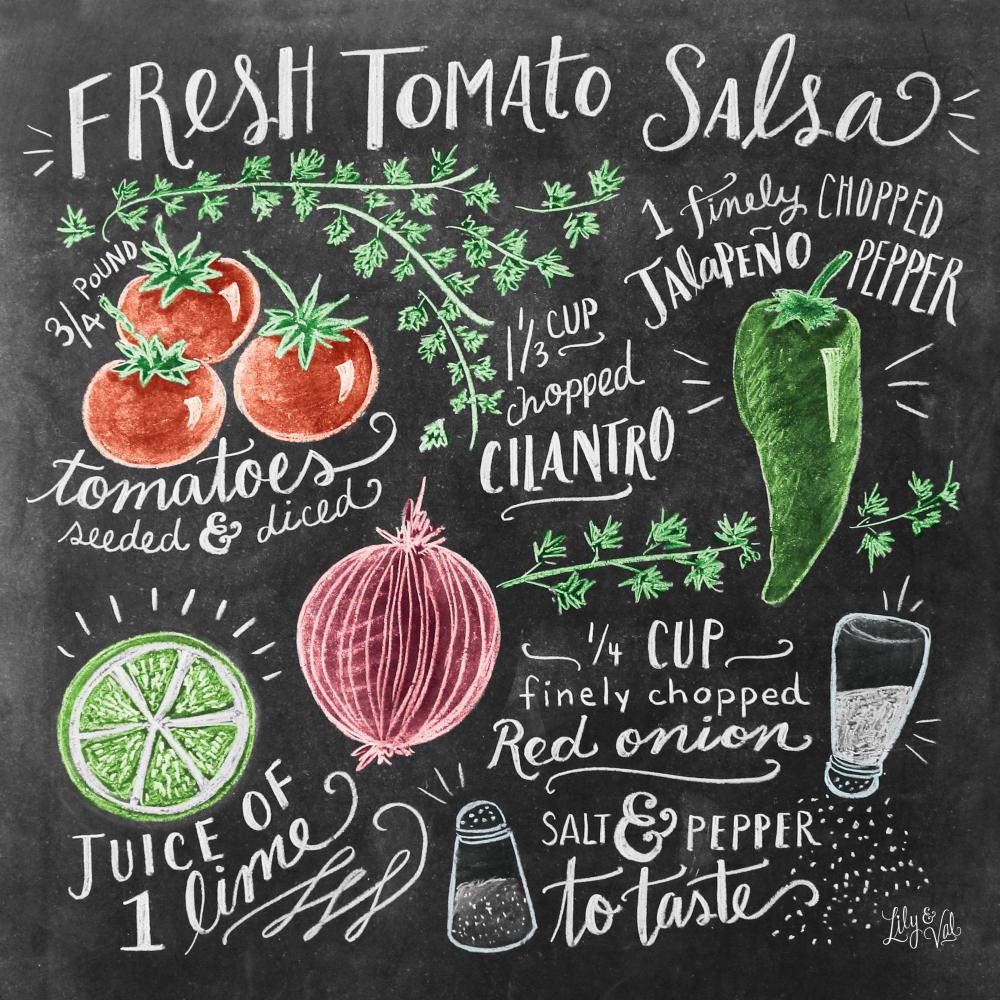 FResH TOMAto Salsa
1 finely CHOPPED
JalaPEÑO PEPPER
3/4 POUND
tomatoes
seeded & diced
1 1/3 CUP
chopped
CILANTRO
1/4 CUP
finely chopped
Red onion
JUICE OF
1 lime
SALT & PEPPER
to taste
Lily & Val